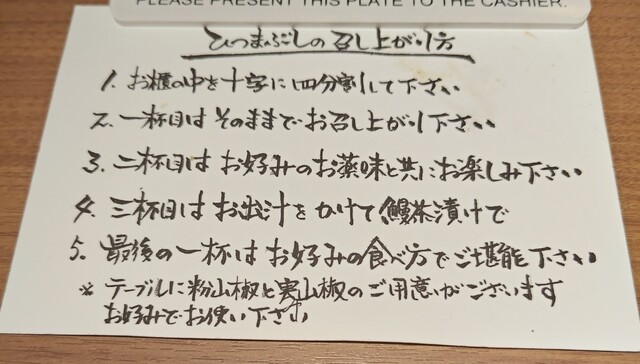 PLEASE PRESENT THIS PLATE TO THE CASHIER.
ひつまぶしの召し上がり方
1. お櫃の中を十字に四分割して下さい
2. 一杯目はそのままでお召し上がり下さい
3. 二杯目はお好みのお薬味と共にお楽しみ下さい
4. 三杯目はお出汁をかけて鰻茶漬けで
5. 最後の一杯はお好みの食べ方でご堪能下さい
※ テーブルに粉山椒と実山椒のご用意がございます
お好みでお使い下さい